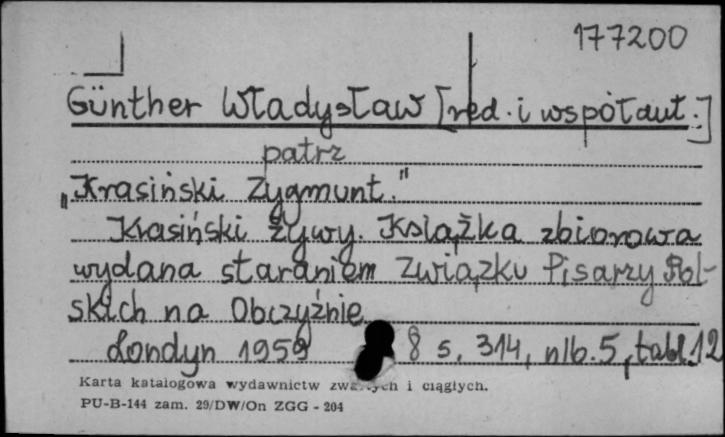 177200
Günther Władysław [red. i współaut.]
patrz
"Krasiński Zygmunt."
Krasiński żywy. Książka zbiorowa
wydana staraniem Związku Pisarzy Pol-
skich na Obczyźnie
Londyn 1959 8 s. 314, nlb. 5, tabl. 12
Karta katalogowa wydawnictw zwartych i ciągłych.
PU-B-144 zam. 29/DW/On ZGG - 204